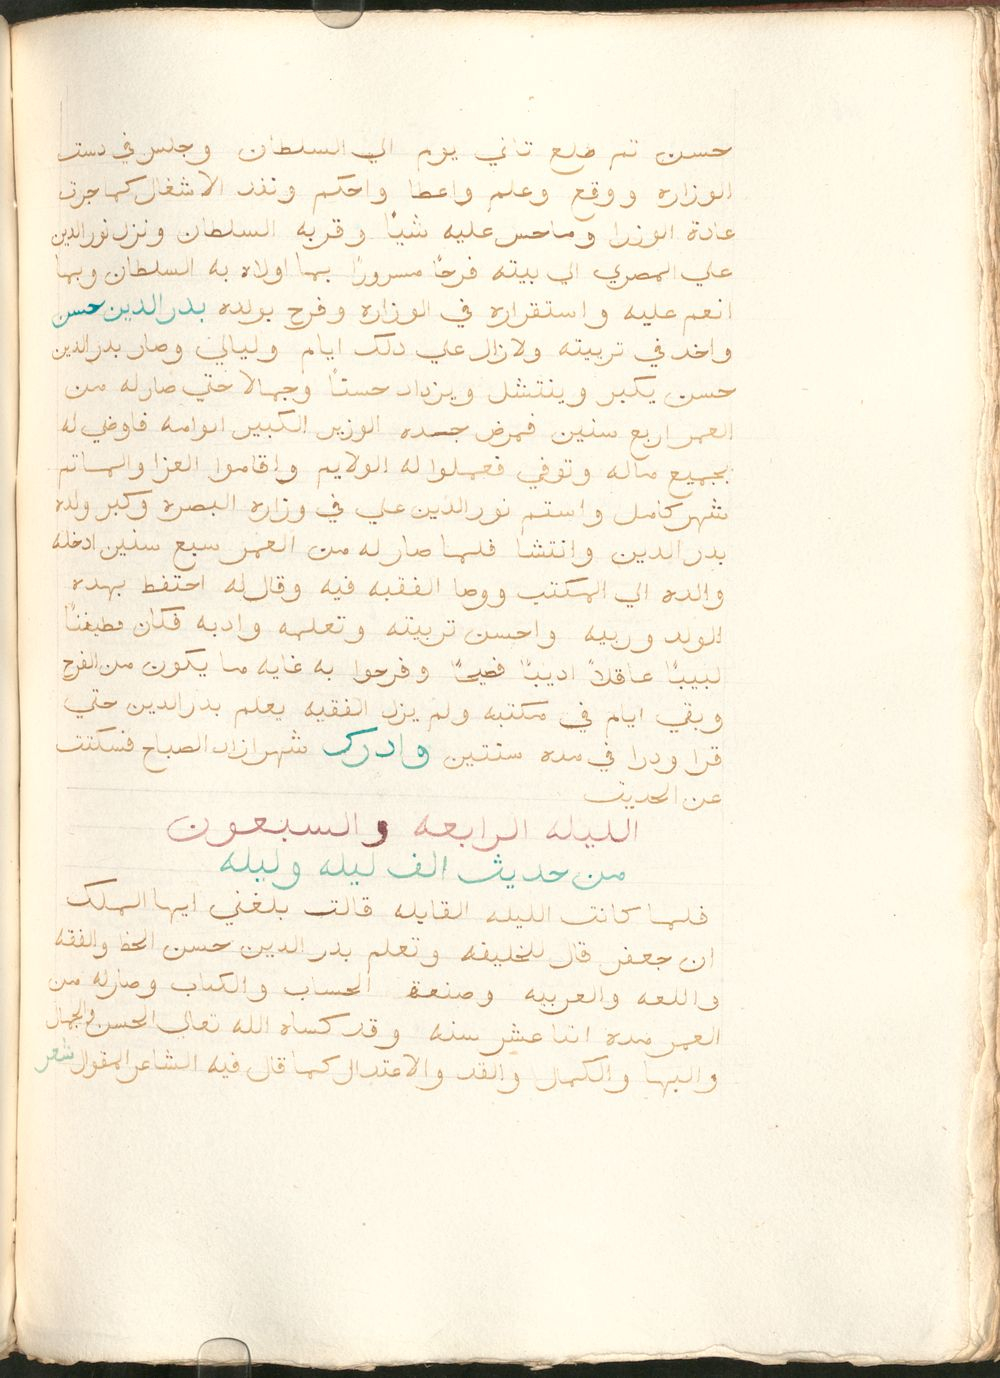 حسن تم طلع تاني يوم الي السلطان وجلس في دست
الوزاره ووقع وعلم واعطا واحكم ونفد الاشغال كما جرت
عادة الوزرا وماحس عليه شيئًا وقربه السلطان ونزل نور الدين
علي المصري الي بيته فرحًا مسرورًا بما اولاه به السلطان وبما
انعم عليه واستقراره في الوزاره وفرح بولده بدر الدين حسن
واخد في تربيته ولازال علي دلك ايام وليالي وصار بدر الدين
حسن يكبر وينتشل ويزداد حسنًا وجمالا حتي صار له من
العمر اربع سنين فمرض جسده الوزير الكبير ابوامه فاوضي له
بجميع ماله وتوفي فعملوا له الولايم واقاموا العزا والماتم
شهر كامل واستم نور الدين علي في وزارة البصره وكبر ولده
بدر الدين وانتشا فلما صار له من العمر سبع سنين ادخله
والده الي المكتب ووصا الفقيه فيه وقال له احتفط بهده
الولد وربيه واحسن تربيته وتعلمه وادبه فكان فطيفنًا
لبيبًا عاقلاً اديبًا فصيحًا وفرحوا به غايه ما يكون من الفرح
وبقي ايام في مكتبه ولم يزل الفقيه يعلم بدر الدين حتي
قرا ودرا في مده سنتين وادرك شهرازاد الصباح فسكتت
عن الحديث
الليله الرابعه والسبعون
من حديث الف ليله وليله
فلما كانت الليله القابله قالت بلغني ايها الملك
ان جعفر قال للخليفه وتعلم بدر الدين حسن الخط والفقه
واللعه والعربيه وصنعة الحساب والكتاب وصار له من
العمر مده اتنا عشر سنه وقد كساه الله تعالي الحسن والجمال
والبها والكمال والقد والاعتدال كما قال فيه الشاعر المقول شعر